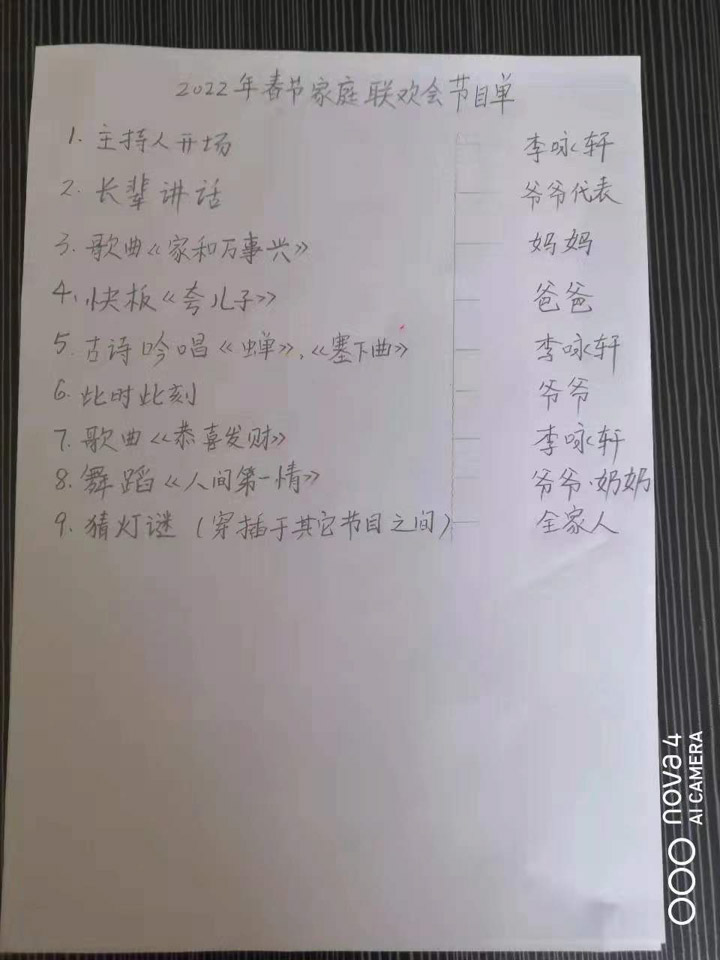 2022年春节家庭联欢会节目单
1. 主持人开场 李咏轩
2. 长辈讲话 爷爷代表
3. 歌曲《家和万事兴》 妈妈
4. 快板《夸儿子》 爸爸
5. 古诗吟唱《蝉》、《塞下曲》 李咏轩
6. 此时此刻 爷爷
7. 歌曲《恭喜发财》 李咏轩
8. 舞蹈《人间第一情》 爷爷·奶奶
9. 猜灯谜（穿插于其它节目之间） 全家人
nova 4
AI CAMERA